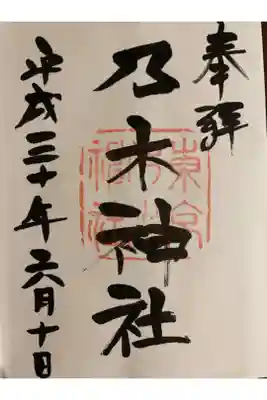 奉拝
乃木神社
平成三十年六月十日